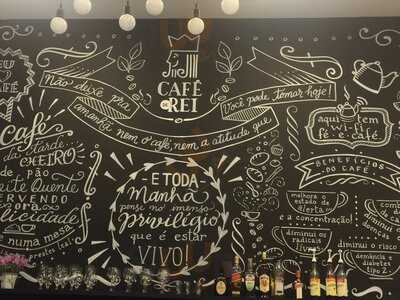 CAFÉ
DO REI
Não deixe pra
amanhã nem o café, nem a atitude que
Você pode tomar hoje!
Café
da tarde
CHEIRO
de pão
Quente
numa mesa
E TODA
Manhã
pense no imenso
privilégio
que é estar
VIVO!
aqui tem
wi-fi
café
BENEFÍCIOS
DO CAFÉ
melhora o
estado de
alerta e
a concentração
diminui os
radicais
diminui o risco
demência
diabetes
tipo 2